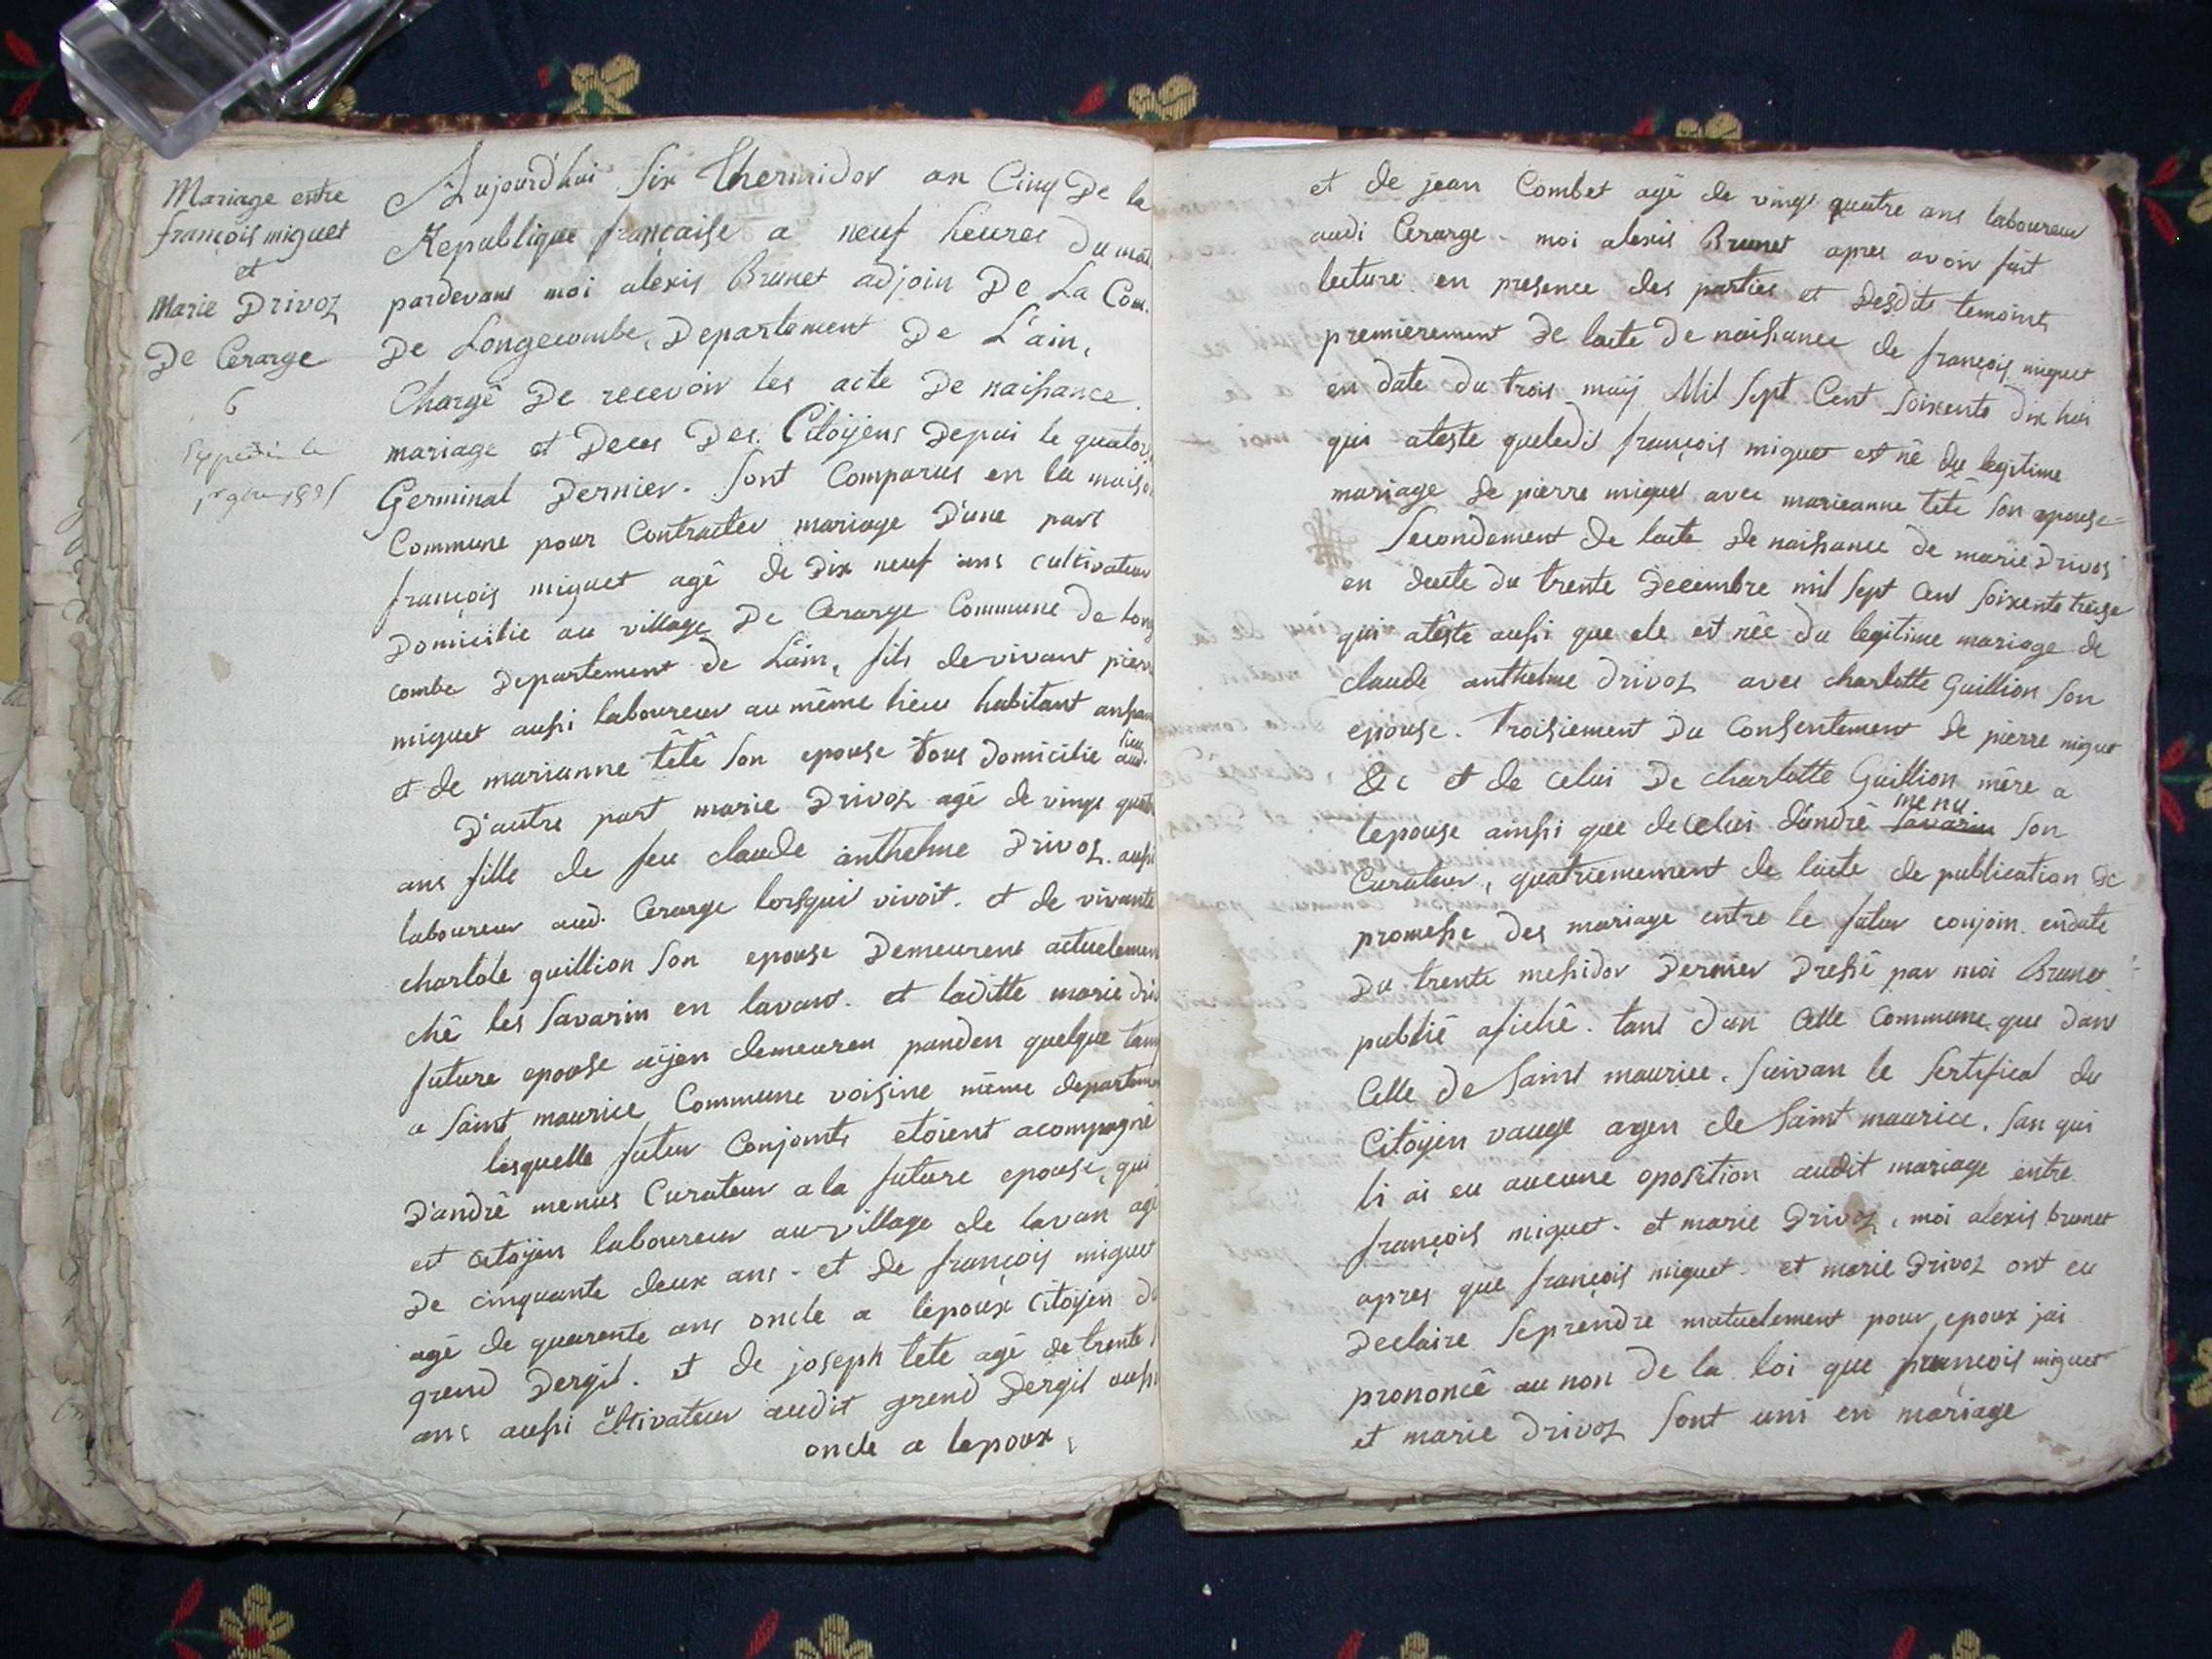 Mariage entre
françois miguet
et
Marie Drivoz
De Cerarge
6
Expedié le
Aujourd'hui Six thermidor an Cinq De la
Republique françaisse a neuf heures du
pardevans moi alexis Brunet adjoin De La Com.
De Longecombe, Departement De L'ain,
Chargé De recevoir les acte De naissance
mariage et Deces Des Citoÿens Depui le
Germinal Dernier. Sont Comparus en la
Commune pour Contracter mariage D'une part
françois miguet agé de Dix neuf ans cultivateur
Domicilie au village De Cerarge Commune de
combe Departement de Lain, fils devivant
miguet aussi laboureur au même lieu habitant
et de marianne têtê son epouse tous Domicilie aud. lieu
D'autre part marie Drivoz agé de vingt
ans fille de feu claude anthelme Drivoz. aussi
laboureur aud. Cerarge lorsqui vivoit. et de vivante
charlote guillion son epouse Demeurent
chê les Savarin en lavant. et laditte marie
future epouse aÿen demeuren panden quelque
a Saint maurice Commune voisine même
lesquelle futur Conjoints etoient acompagné
D'andrê menus Curateur a la future epouse, qui
est Citoÿen laboureur au village de lavan agé
De cinquante deux ans - et De françois miguet
agé de quarente ans oncle a lepoux Citoÿen
grend Dergit. et de joseph tete agé de trente
ans aussi cultivateur audit grend Dergit aussi
oncle a lepoux,
et de jean Combet agé de vingt quatre ans laboureur
audi Cerarge - moi alexis Brunet apres avoir fait
lecture en presence des parties et Desdits temoins
premierement De lacte De naissance de françois miguet
en date du trois maÿ Mil Sept Cent Soixente Dix hui
qui ateste queledit françois miguet est né du legitime
mariage De pierre miguet avec marieanne têtê son epouse=
Secondement de lacte De naissance de marie Drivos
en daete du trente Decembre mil Sept Cent Soixente treise
qui atêste aussi que ele est née du legitime mariage de
claude anthelme Drivoz avec charlotte Guillion son
epouse. Troisiement Du Consentement De pierre miguet
&c et de celui De charlotte Guillion mêre a
lepouse ainssi que de Celui d'andrê Savarin menu son
Curateur, quatriemement de lacte de publication De
promesse des mariage entre le futur conjoin. endate
Du trente messidor Dernier Dressê par moi Brunet
publiê afichê. tant Dan Cette Commune, que Dans
Celle de Saint maurice. Suivan le Sertificat du
Citoÿen vauge agen de Saint maurice. San qui
li ai eu aucune oposition audit mariage entre
françois miguet. et marie Drivoz, moi alexis brunet
apres que françois miguet. et marie Drivoz ont eu
Declaire Seprendre mutuelement pour epoux jai
prononcê au non de la loi que françois miguet
et marie Drivoz Sont uni en mariage